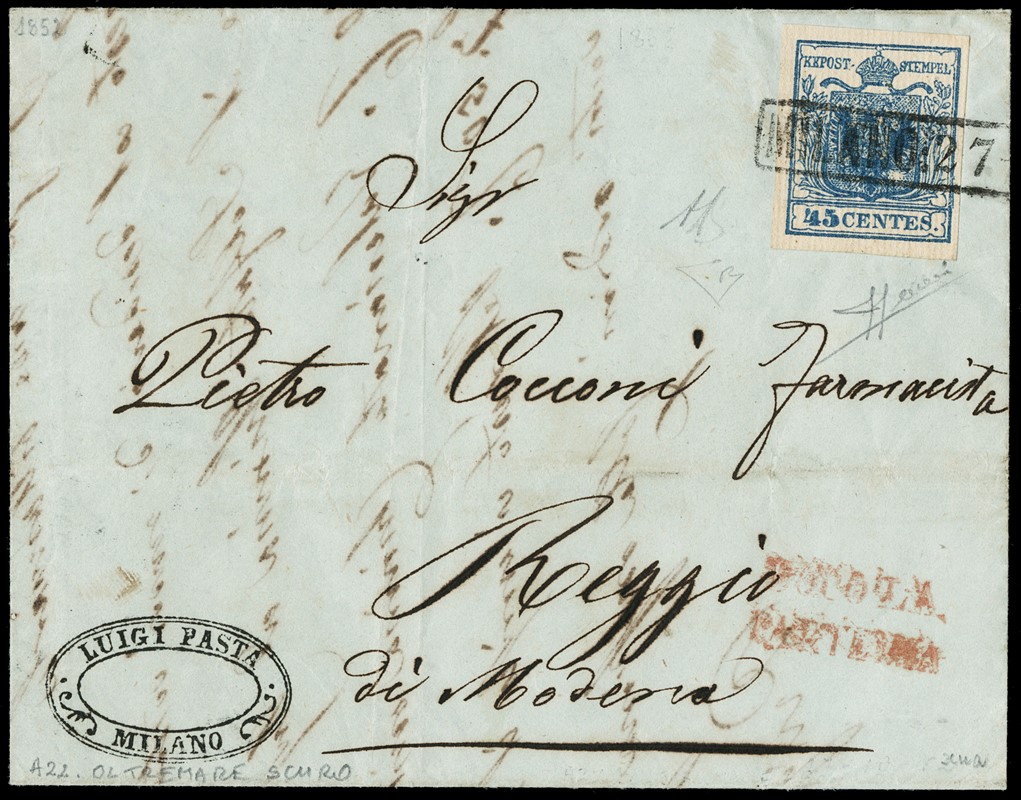 1852
KKPOST-STEMPEL
MILANO 27
45 CENTES.
Sigr
Pietro Cocconi Farmacista
Reggio
di Modena
LUIGI PASTA
MILANO
A22. OLTREMARE SCURO